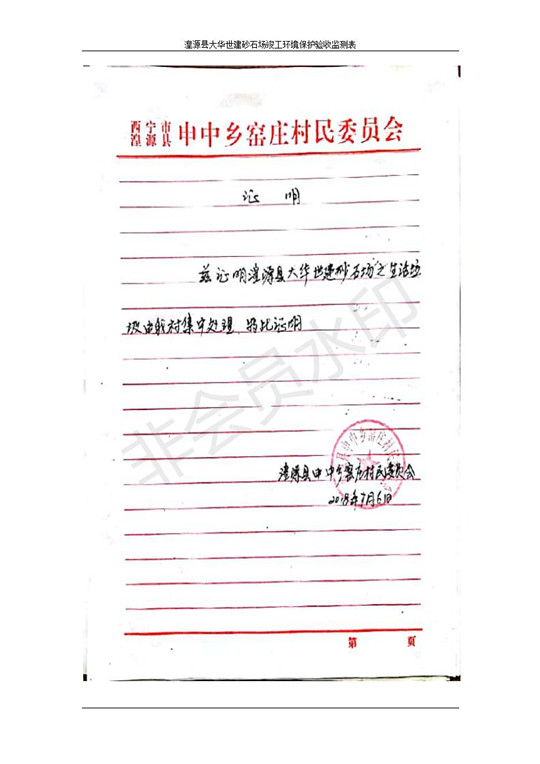 湟源县大华世建砂石场竣工环境保护验收监测表
西宁市
湟源县 申中乡窑庄村民委员会
证 明
兹证明湟源县大华世建砂石场之生活垃
圾由我村集中处理,特此证明
湟源县申中乡窑庄村民委员会
2018年7月6日
第 页
非会员水印